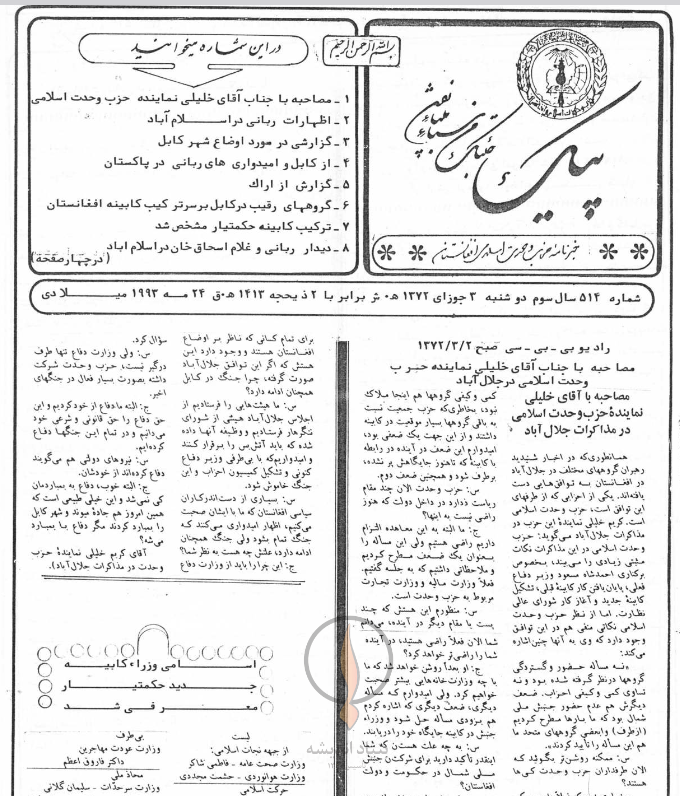 بسم الله الرحمن الرحیم
پیک
خبرنامه حزب وحدت اسلامی افغانستان
در این شماره میخوانید
۱ ـ مصاحبه با جناب آقای خلیلی نماینده حزب وحدت اسلامی
۲ ـ اظهارات ربانی در اسلام آباد
۳ ـ گزارشی در مورد اوضاع شهر کابل
۴ ـ از کابل و امیدواری های ربانی در پاکستان
۵ ـ گزارش از اراك
۶ ـ گروههای رقیب در کابل بر سر ترکیب کابینه افغانستان
۷ ـ ترکیب کابینه حکمتیار مشخص شد
۸ ـ دیدار ربانی و غلام اسحاق خان در اسلام اباد
(در چهار صفحه)
شماره ۵۱۴ سال سوم دو شنبه ۳ جوزای ۱۳۷۲ ه‍.ش برابر با ۲ ذیحجه ۱۴۱۳ ه‍.ق ۲۴ مه ۱۹۹۳ میلادی
رادیو بی ـ بی ـ سی صبح ۱۳۷۲/۳/۲
مصاحبه با جناب آقای خلیلی نماینده حزب
وحدت اسلامی در جلال آباد
مصاحبه با آقای خلیلی
نمایندهٔ حزب وحدت اسلامی
در مذاکرات جلال آباد
همانطوری‌که در اخبار شنیدید
رهبران گروههای مختلف در جلال‌آباد
در افغانستان به توافق‌هایی دست
یافته‌اند. یکی از احزابی که از طرفهای
این توافق است، حزب وحدت اسلامی
است. کریم خلیلی نمایندهٔ این حزب در
مذاکرات جلال‌آباد میگوید: حزب
وحدت اسلامی در این مذاکرات نکات
مثبتی زیادی را می‌بیند، بخصوص
برکناری احمدشاه مسعود وزیر دفاع
فعلی، پایان یافتن کار کابینهٔ قبلی، تشکیل
کابینهٔ جدید و آغاز کار شورای عالی
نظارت. اما از نظر حزب وحدت
اسلامی نکاتی منفی هم در این توافق
وجود دارد که وی به آنها چنین اشاره
می‌کند:
«نه مسأله حضور و گستردگی
گروهها در نظر گرفته شده بود و نه
تساوی کمی و کیفی احزاب. ضعف
دیگرش هم عدم حضور جنبش ملی
شمال بود که ما بارها مطرح کردیم
(از طرف) و بعضی گروههای متحد ما
هم این مسأله را تأیید کردند.»
س: ممکنه روشن‌تر بگوئید که
الان طرفداران حزب وحدت کی‌ها
هستند؟
کمی وکیفی گروهها هم اینجا ملاک
نبود، بخاطری‌که حزب جمعیت نسبت
به باقی گروهها بسیار موقعیت در کابینه
داشتند و از این جهت یک ضعفی بود،
امیدوارم این ضعف در آینده در رابطه
با کابینه که تاهنوز جایگاهش پر نشده،
برطرف شود و همچنین ضعف دوم.
س: حزب وحدت الان چند مقام
ریاست ندارد در داخل دولت که هنوز
راضی نیست به اینها؟
ج: ما البته به این معاهده التزام
داریم راضی هستیم ولی این مسأله را
بعنوان یک ضعف مطرح کردیم
و ملاحظاتی داشتیم که به جلسه گفتیم.
فعلاً وزارت مالیه و وزارت تجارت
مربوط به حزب وحدت است.
س: منظورم این هستش که چند
پست یا مقام دیگر در آینده، می‌دانم
شما الان فعلاً راضی هستید، در آینده
شما را راضی‌تر خواهد کرد؟
ج: او بعداً روشن خواهد شد که ما
با چه وزارت خانه‌هایی بیشتر صحبت
خواهیم کرد. ولی امیدوارم که مسأله
دیگری، ضعف دیگری که اشاره کردم
هم بزودی مسأله حل شود و وزراء
جنبش در کابینه جایگاه خود را دریابند.
س: به چه علت هستن که شما
اینقدر تأکید دارید برای شرکت جنبش
ملی شمال در حکومت و دولت
افغانستان؟
برای تمام کسانی که ناظر بر اوضاع
افغانستان هستند و وجود دارد این
هستش که اگر این توافق جلال‌آباد
صورت گرفته، چرا جنگ در کابل
همچنان ادامه دارد؟
س: ما هیئت‌هایی را فرستادیم از
اجلاس جلال‌آباد هیئتی از شورای
ننگرهار فرستادیم و وظیفه آنها داده
شده که باید آتش‌بس را برقرار کنند
و امیدواریم که با بی‌طرفی وزیر دفاع
کنونی و تشکیل کمیسیون احزاب و این
جنگ خاموش شود.
س: بسیاری از دست‌اندرکاران
سیاسی افغانستان که ما با ایشان صحبت
می‌کنیم، اظهار امیدواری می‌کنند که
جنگ تمام بشود ولی جنگ همچنان
ادامه دارد، علتش چه هست به نظر شما؟
ج: این چرا را باید از وزارت دفاع
سؤال کرد.
س: ولی وزارت دفاع تنها طرف
درگیر نیست، حزب وحدت شرکت
داشته بصورت بسیار فعال در جنگهای
اخیر.
ج: البته ما دفاع از خود کردیم و این
حق دفاع را حق قانونی و شرعی خود
می‌دانیم و در تمام این جنگها دفاع
کرده‌ایم.
س: نیروهای دولتی هم می‌گویند
دفاع کرده‌اند از خودشان.
ج: البته خوب، دفاع به بمباردمان
کی نمی‌شد و این خیلی طبیعی است که
همین امروز هم جاده میوند و شهر کابل
را بمبارد کردند مگر دفاع با بمبارد
می‌شه؟
آقای کریم خلیلی نمایندهٔ حزب
وحدت در مذاکرات جلال‌آباد).
اسامی وزراء کابینه
جدید حکمتیار
معرفی شد
لیست
از جبهه نجات اسلامی:
وزارت صحت عامه ـ فاطمی شاکر
وزارت هوانوردی ـ حشمت مجددی
حرکت اسلامی
بی‌طرف
وزارت عودت مهاجرین
داکتر فاروق اعظم
محاذ ملی
وزارت سرحدات ـ سلیمان گلانی
بنیاد اندیشه